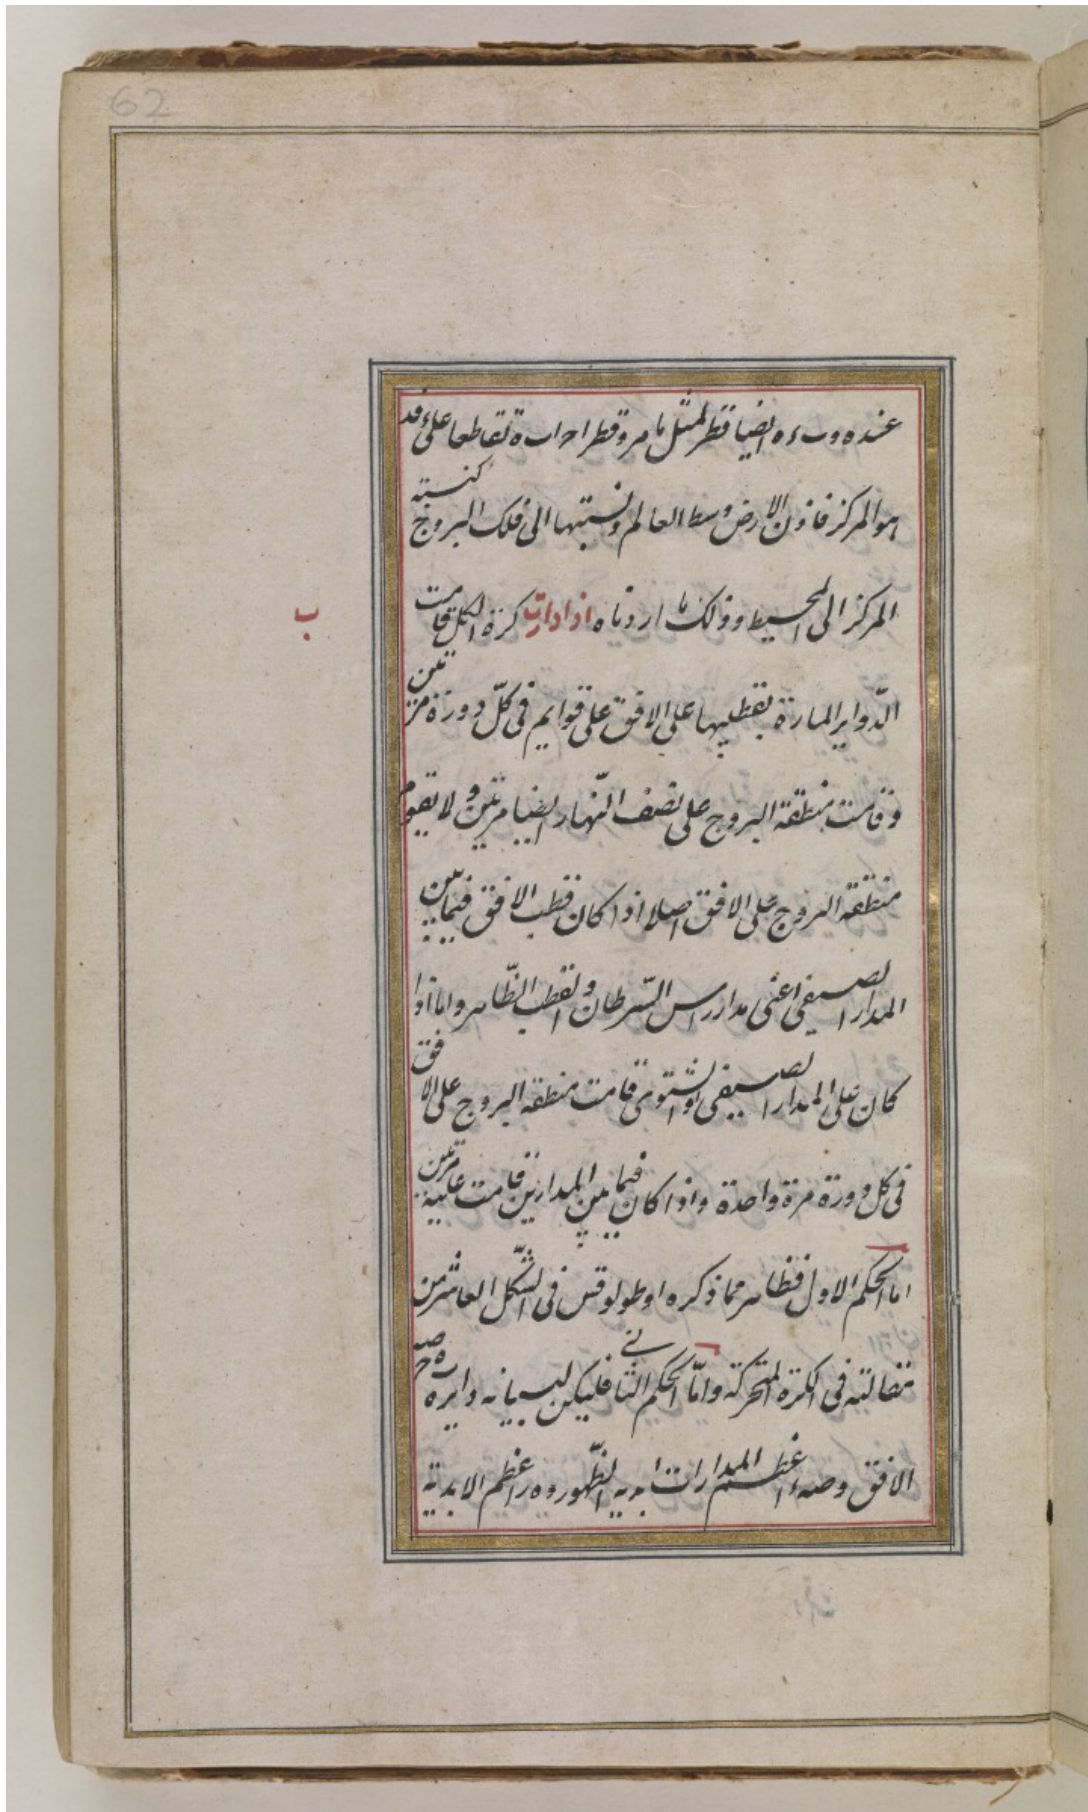 62
عنده و ب ء ه ايضا قطر لمثل ما مر وقطر احراب ة تقاطعا على ء فد
امو المركز فاذن الارض وسط العالم ونسبتها الى فلك البروج كنسبته
المركز الى المحيط وذلك ما اردناه اذا دارت كرة الكل قامت
ب
الدّواير المارة بقطبيها على الافق على قوايم فى كلّ دورة مرتين
وقامت منطقة البروج على نصف النّهار ايضا مرتين ولا يقوم
منطقة البروج على الافق اصلا اذا كان قطب الافق فيما بين
المدار الصيفى اعنى مدار راس السّرطان والقطب الظّاهر واما اذا
كان على المدار الصيفى او الشتوى قامت منطقة البروج على الافق
فى كل دورة مرة واحدة واذا كان فيما بين المدارين قامت عليه مرتين
اما الحكم الاول فظاهر مما ذكره اوطولوقس فى الشّكل العاشر من
مقالته فى الكرة المتحركة وامّا الحكم الثانى فليكن لبيانه دايرة ه ح صه
الافق و صه ء اعظم المدارات ابدية الظّهور و ه ر اعظم الابدية